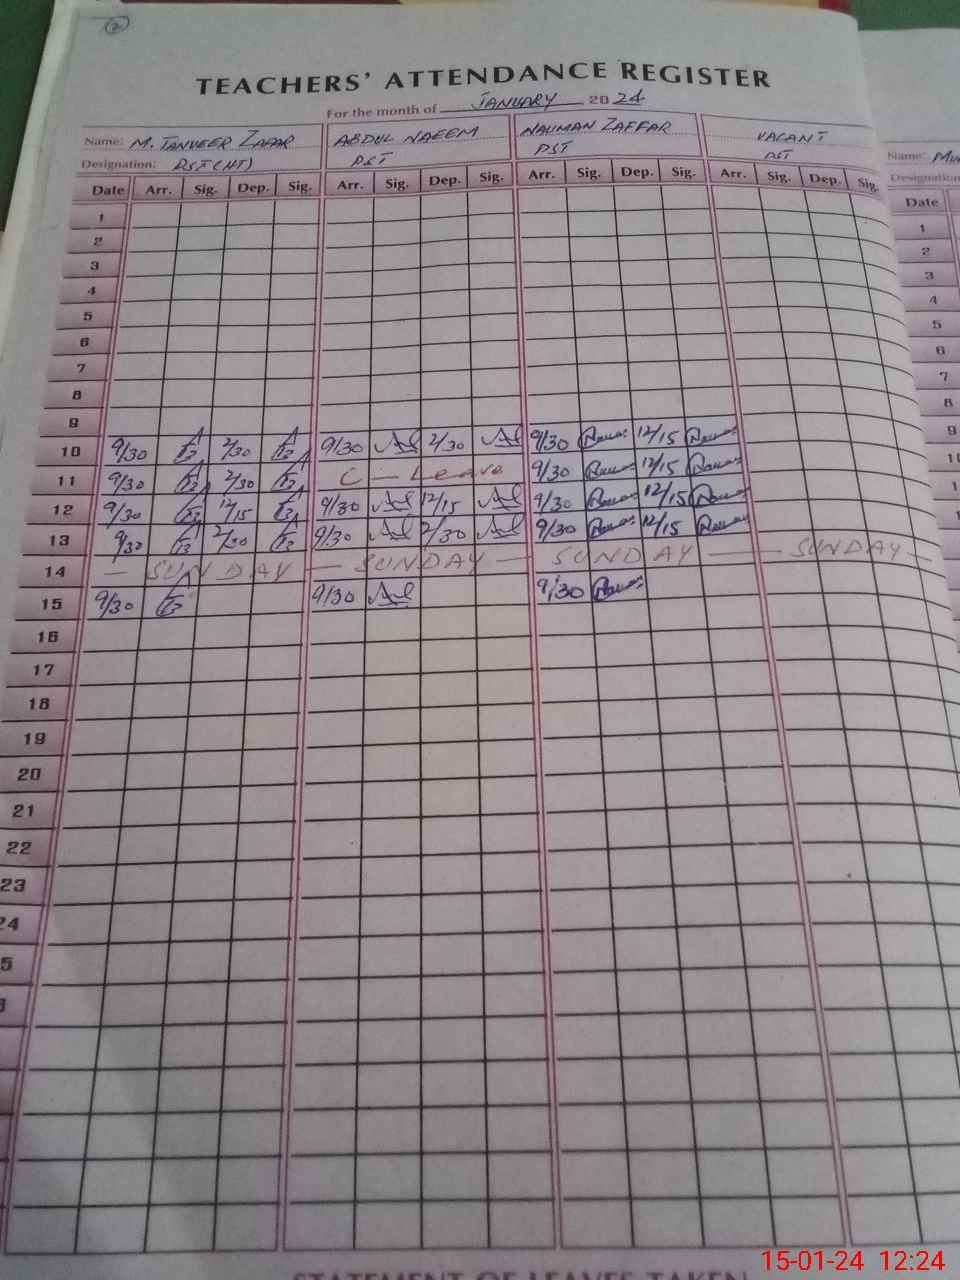 2
TEACHERS' ATTENDANCE REGISTER
For the month of JANUARY 2024
Name: M. TANVEER ZAFAR ABDUL NAEEM NAUMAN ZAFFAR VACANT Name:
Designation: PST (HT) PST PST PST Designation
Date Arr. Sig. Dep. Sig. Arr. Sig. Dep. Sig. Arr. Sig. Dep. Sig. Arr. Sig. Dep. Sig. Date
1 1
2 2
3 3
4 4
5 5
6 6
7 7
8 8
9 9
10 9/30 2/30 9/30 2/30 9/30 12/15 10
11 9/30 2/30 C-Leave 9/30 12/15
12 9/30 12/15 9/30 12/15 9/30 12/15
13 9/30 2/30 9/30 2/30 9/30 12/15
14 - SUNDAY - SUNDAY - SUNDAY - SUNDAY -
15 9/30 9/30 9/30
16
17
18
19
20
21
22
23
24
5
STATEMENT OF LEAVES TAKEN
15-01-24 12:24